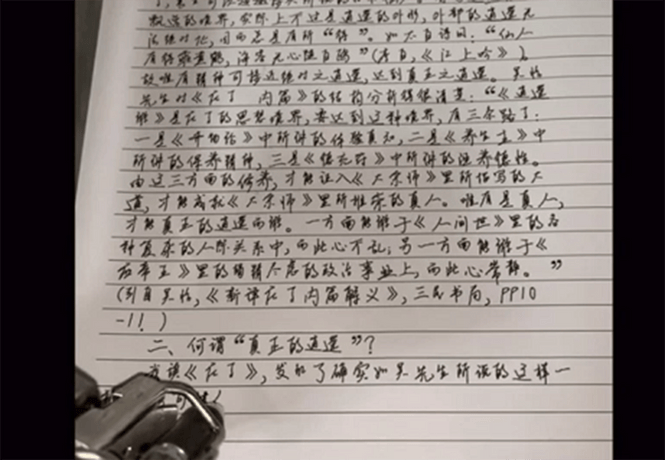 飘逸的境界,实际上不过是逍遥的外形,外部的逍遥无
法绝对化,因而总是有所“待”。如太白诗曰:“仙人
有待乘黄鹤,海客无心随白鸥”(李白,《江上吟》)。
故唯有精神可接近绝对之逍遥,达到真正之逍遥。吴怡
先生对《庄子 内篇》的结构分析得很清楚:“《逍遥
游》是庄子的思想境界,要达到这种境界,有三条路子:
一是《齐物论》中所讲的体验真知,二是《养生主》中
所讲的保养精神,三是《德充符》中所讲的涵养德性。
由这三方面的修养,才能证入《大宗师》里所描写的大
道,才能成就《大宗师》里所推崇的真人。唯有是真人,
才能真正的逍遥而游。一方面能游于《人间世》里的各
种复杂的人际关系中,而此心不乱;另一方面能游于《
应帝王》里的错综复杂的政治事业上,而此心常静。”
(引自吴怡,《新译庄子内篇解义》,三民书局,PP10
-11)
二、何谓“真正的逍遥”?
一读《庄子》,发现了确实如吴先生所说的这样一